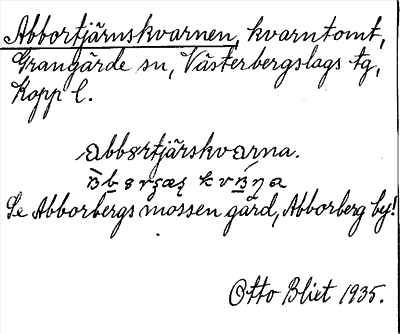 Abbortjärnskvarnen, kvarntomt,
Grangärde sn, Västerbergslags tg,
Kopp l.
abbortjärskvarna.
Se Abborbergsmossen gård, Abborberg by!
Otto Blixt 1935.